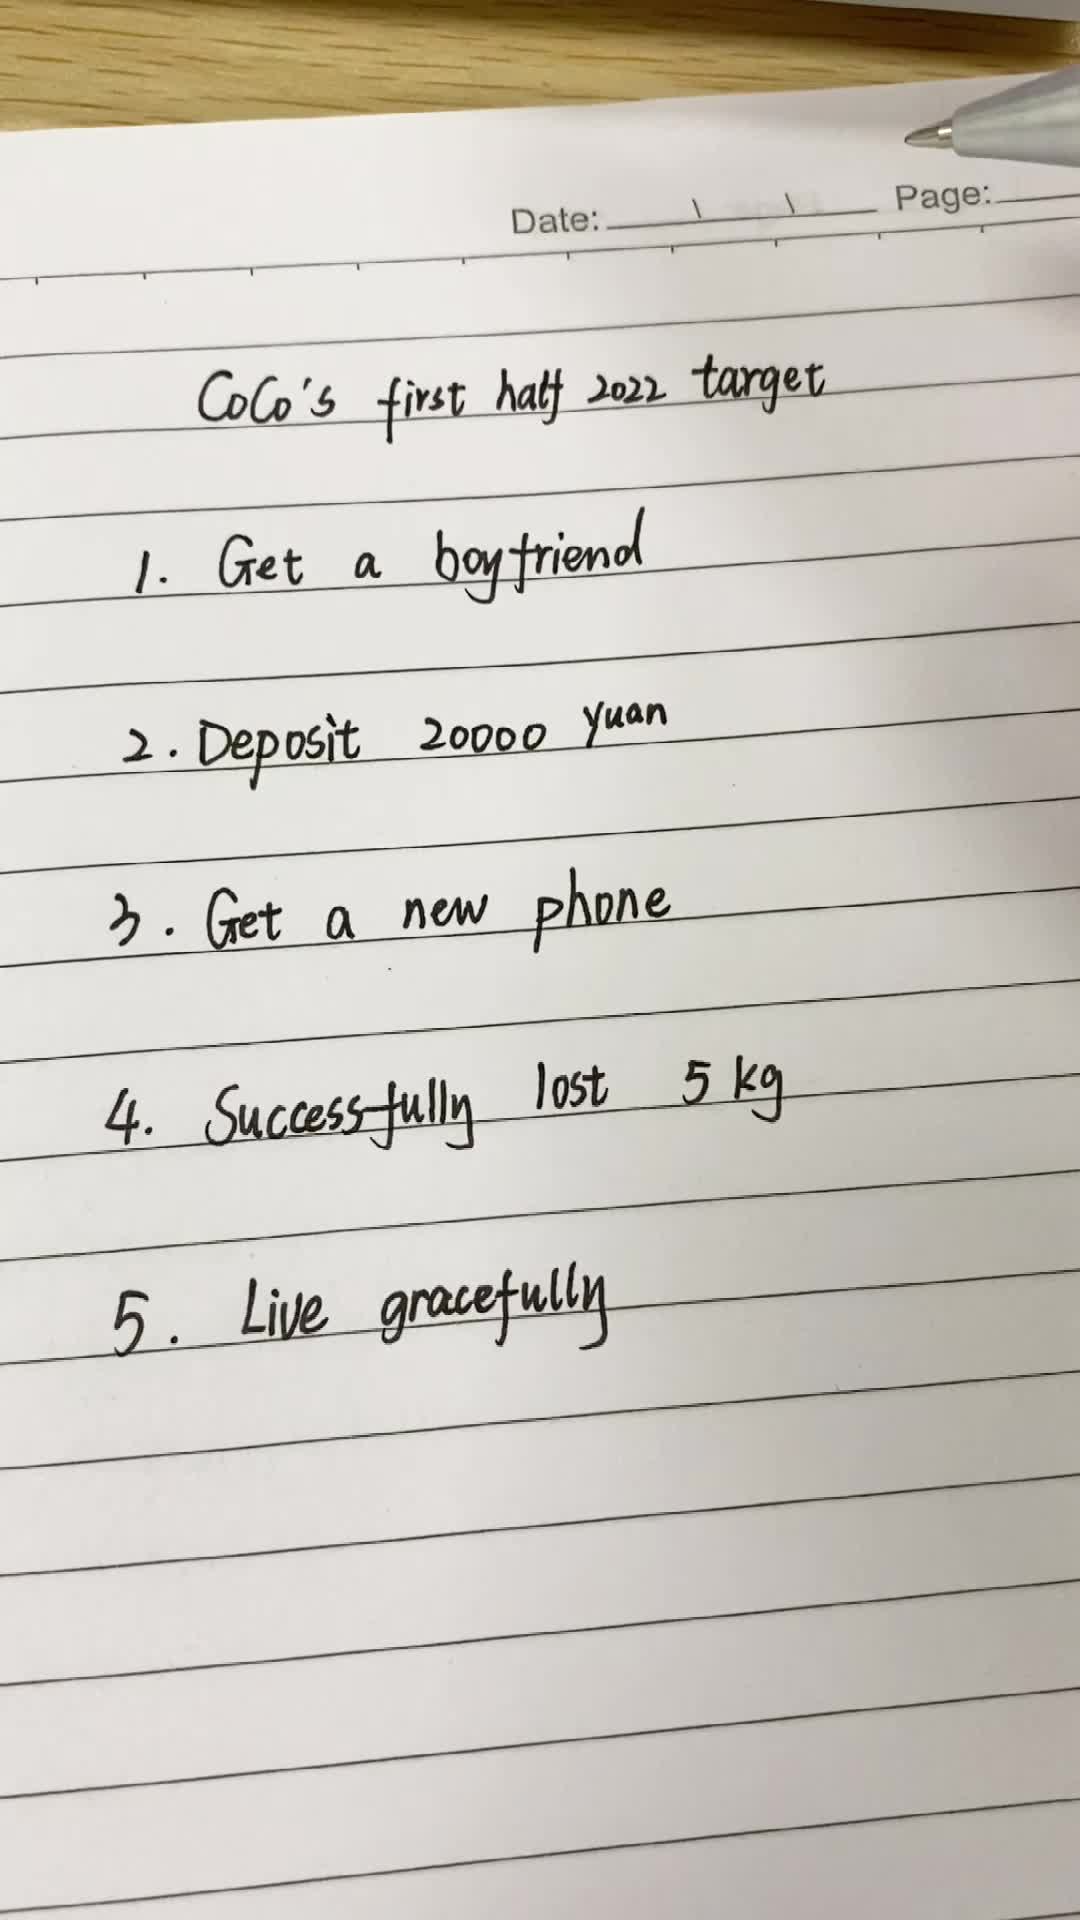 Date: Page:
CoCo's first half 2022 target
1. Get a boyfriend
2. Deposit 20000 yuan
3. Get a new phone
4. Successfully lost 5 kg
5. Live gracefully